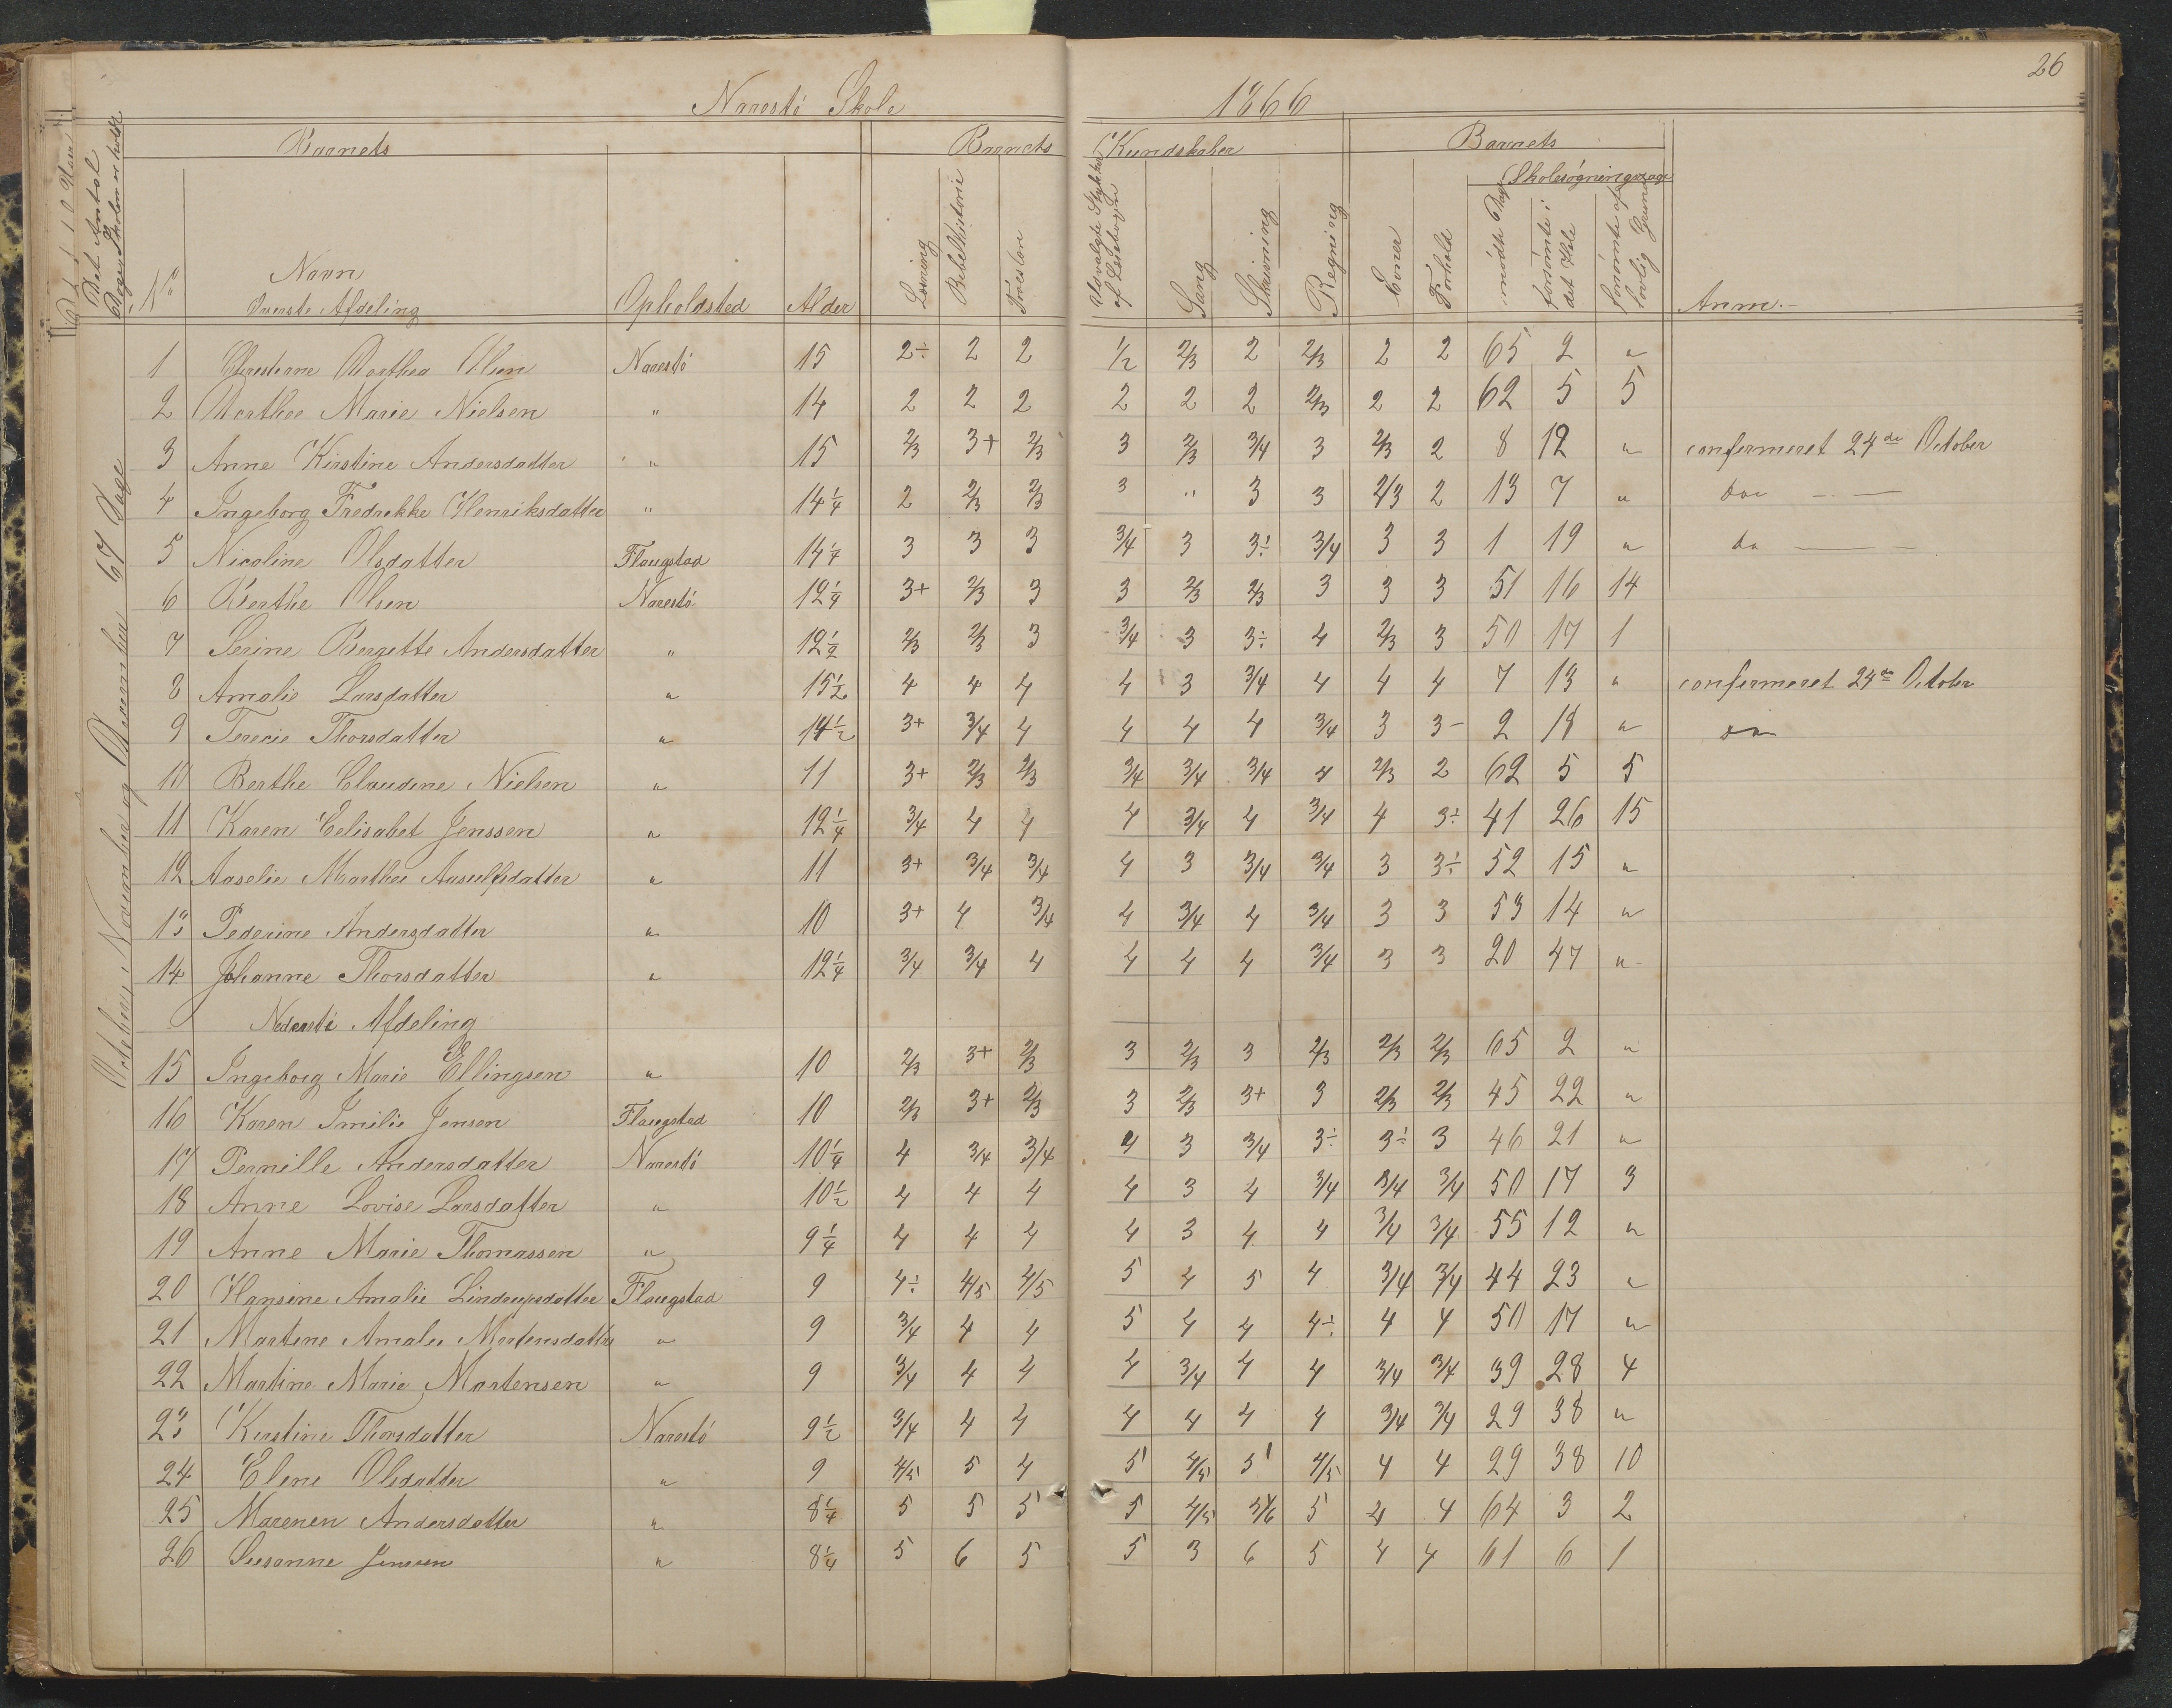 26
Narestö Skole 1866
Barnets Barnets Kundskaber Barnets
Skolesøgningsdage
Det Antal Dage Skolen er holdt
No Navn Opholdsted Alder Læsning Bibelhistorie Troeslære Udvalgte Stykker af Læsebogen Sang Skrivning Regning Evner Forhold mødte Dage forsømte i det Hele forsømte af lovlig Grund Anm.
Øverste Afdeling
October, November og December 67 Dage
1 Christine Dorthea Olsen Narestö 15 2÷ 2 2 1/2 2/3 2 2/3 2 2 65 2 "
2 Dorthea Marie Nielsen " 14 2 2 2 2 2 2 2/3 2 2 62 5 5
3 Anne Kirstine Andersdatter " 15 2/3 3+ 2/3 3 2/3 3/4 3 2/3 2 8 12 " confermeret 24de October
4 Ingeborg Fredrikke Henriksdatter " 14 1/4 2 2/3 2/3 3 " 3 3 2/3 2 13 7 " do — —
5 Nicoline Olsdatter Flaugstad 14 1/4 3 3 3 3/4 3 3÷ 3/4 3 3 1 19 " do — —
6 Berthe Olsen Narestö 12 1/4 3+ 2/3 3 3 2/3 2/3 3 3 3 51 16 14
7 Serine Bergette Andersdatter " 12 1/2 2/3 2/3 3 3/4 3 3÷ 4 2/3 3 50 17 1
8 Amalie Larsdatter " 15 1/2 4 4 4 4 3 3/4 4 4 4 7 13 " confermeret 24de October
9 Terecie Thorsdatter " 14 1/2 3+ 3/4 4 4 4 4 3/4 3 3- 2 18 "
10 Berthe Claudine Nielsen " 11 3+ 2/3 2/3 3/4 3/4 3/4 4 2/3 2 62 5 5
11 Karen Eelisabet Jenssen " 12 1/4 3/4 4 4 4 3/4 4 3/4 4 3÷ 41 26 15
12 Aaselie Marthea Aasulfsdatter " 11 3+ 3/4 3/4 4 3 3/4 3/4 3 3÷ 52 15 "
13 Pederine Andersdatter " 10 3+ 4 3/4 4 3/4 4 3/4 3 3 53 14 "
14 Johanne Thorsdatter " 12 1/4 3/4 3/4 4 4 4 4 3/4 3 3 20 47 "
Nederste Afdeling
15 Ingeborg Marie Ellingsen " 10 2/3 3+ 2/3 3 2/3 3 2/3 2/3 2/3 65 2 "
16 Karen Imilie Jensen Flaugstad 10 2/3 3+ 2/3 3 2/3 3+ 3 2/3 2/3 45 22 "
17 Pernille Andersdatter Narestö 10 1/4 4 3/4 3/4 4 3 3/4 3÷ 3÷ 3 46 21 "
18 Anne Lovise Larsdatter " 10 1/2 4 4 4 4 3 4 3/4 3/4 3/4 50 17 3
19 Anne Marie Thomassen " 9 1/4 4 4 4 4 3 4 4 3/4 3/4 55 12 "
20 Hansine Amalie Lindrupsdatter Flaugstad 9 4÷ 4/5 4/5 5 4 5 4 3/4 3/4 44 23 "
21 Martine Amalie Mortensdatter " 9 3/4 4 4 5 4 4 4÷ 4 4 50 17 "
22 Martine Marie Mortensen " 9 3/4 4 4 4 3/4 4 4 3/4 3/4 39 28 4
23 Kirstine Thorsdatter Narestö 9 1/2 3/4 4 4 4 4 4 4 3/4 3/4 29 38 "
24 Elene Olsdatter " 9 4/5 5 4 5 4/5 5 4/5 4 4 29 38 10
25 Marenen Andersdatter " 8 1/4 5 5 5 5 4/5 5/6 5 4 4 64 3 2
26 Susanne Jenssen " 8 1/4 5 6 5 5 3 6 5 4 4 61 6 1